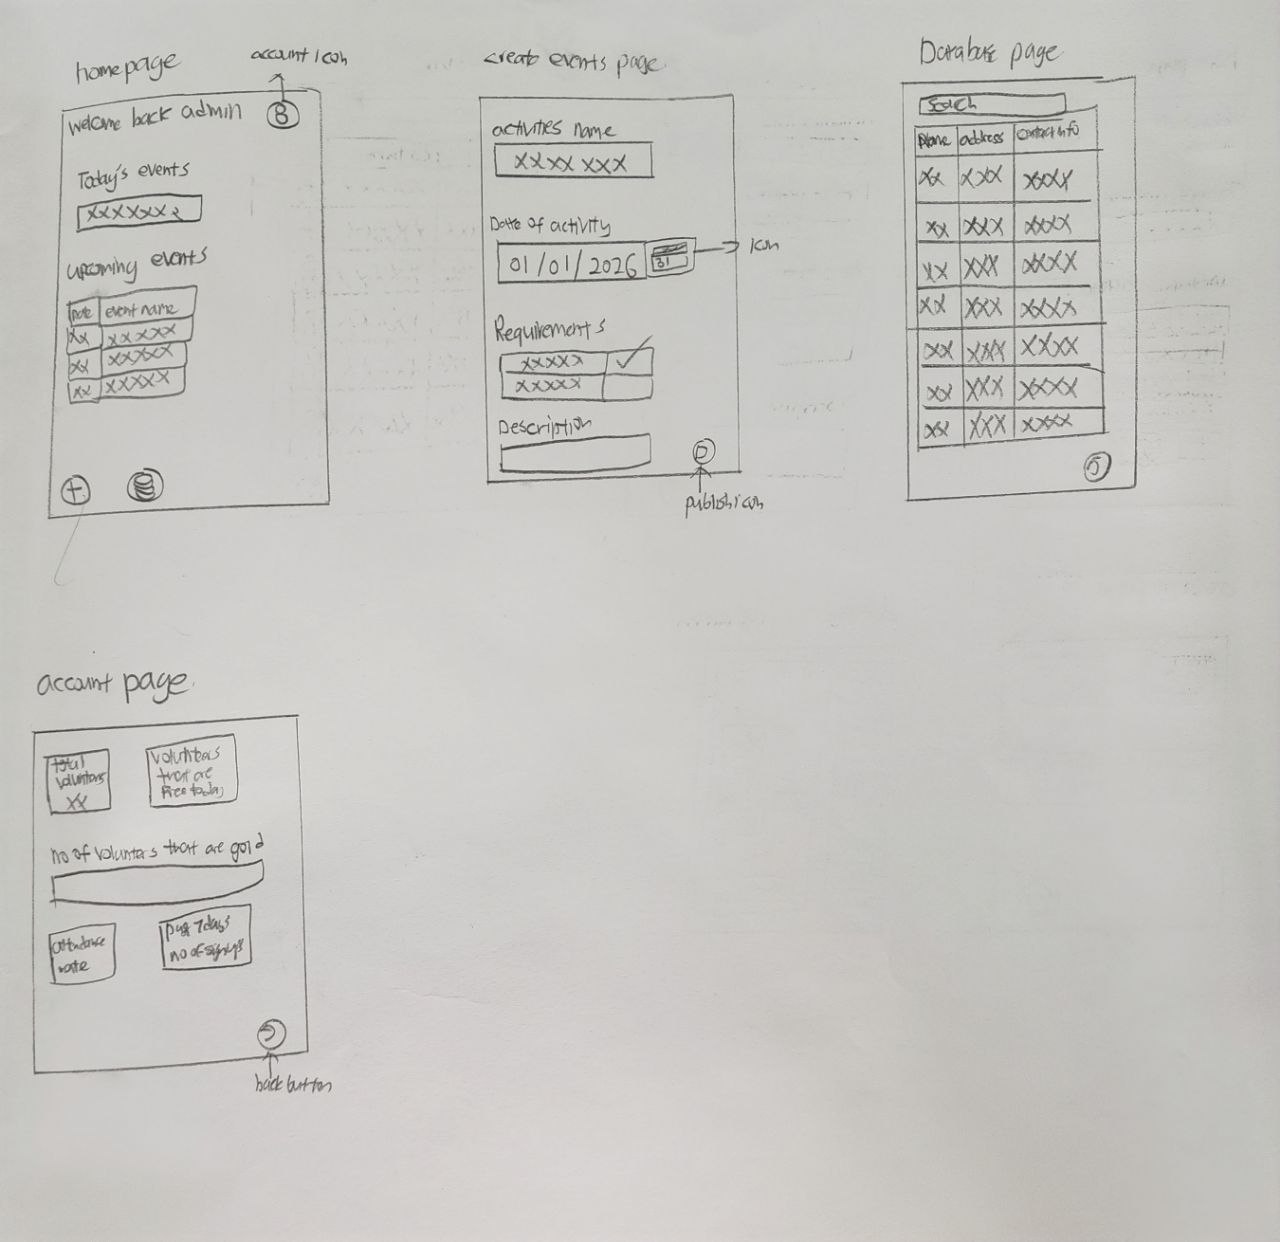 homepage
account icon
welcome back admin
Today's events
xxxxxxx
upcoming events
event name
xx xxxxx
xx xxxxx
xx xxxxx
+
create events page
activities name
xxxx xxx
Date of activity
01/01/2026
31
icon
Requirements
xxxxx ✓
xxxxx
Description
publish icon
Database page
Search
Name address contact info
xx xxx xxxx
xx xxx xxxx
xx xxx xxxx
xx xxx xxxx
xx xxx xxxx
xx xxx xxxx
xx xxx xxxx
account page.
total
volunters
xx
volunteers
that are
free today
no of volunters that are gold
attendance
rate
past 7 days
no of signups
back button